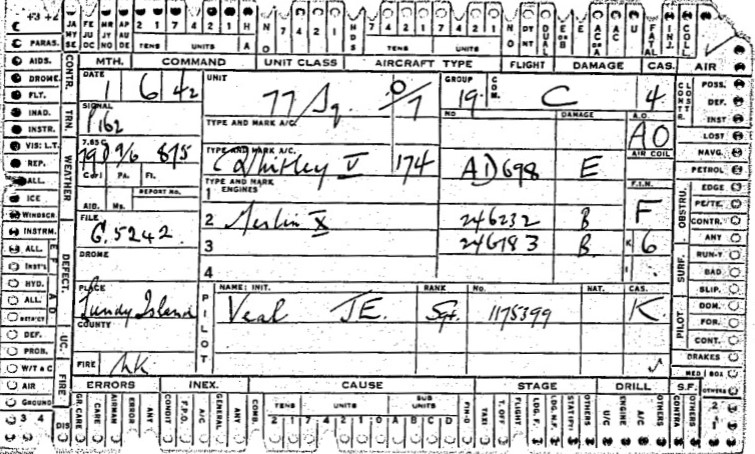 JA FE MR AP
MY JU JY AU
SE OC NO DE
TENS UNITS
2 1 7 4 2 1 HA
NO 7 4 2 1 HDS
TENS UNITS
7 4 2 1 7 4 2 1
NO DY NT DUAL E OR B E AC OR A AC U FATAL INJ. COLL
MTH. COMMAND UNIT CLASS AIRCRAFT TYPE FLIGHT DAMAGE CAS. AIR
PARAS.
AIDS.
DROME.
FLT.
INAD.
INSTR.
VIS: L.T.
REP.
ALL.
ICE
WINDSCR.
INSTRM.
ALL.
INST'S
HYD.
ALL.
DISTRICT
DEF.
PROB.
W/T & C
AIR
GROUND
3 4
CONTR.
TRN.
WEATHER
DEFECT.
UC.
FIRE
DIS
DATE 1 6 42
UNIT 77/Sq. O/7
GROUP 19. COM. C 4
SIGNAL P162
TYPE AND MARK A/C. NO DAMAGE A.O. AO
7.65C 198 9/6 875
TYPE AND MARK A/C. Whitley V 174 AD698 E
AIR COIL
Col PA. Ft.
REPORT No.
AIB. Ms.
TYPE AND MARK ENGINES
1
F.I.N. F
FILE G.5242
2 Merlin X 246232 B
3 246783 B K 6
DROME
4
PLACE Lundy Island
COUNTY
FIRE NK
PILOT
NAME: INIT. RANK No. NAT. CAS.
Veal JE. Sgt. 1175399 K
CONSTR.
OBSTRU.
SURF.
PILOT
POSS.
DEF.
INST
LOST
NAVG.
PETROL
EDGE
PE/TE.
CONTR.
ANY
RUN-Y
BAD
SLIP.
DOM.
FOR.
CONT.
BRAKES
MED BOX
OTHERS
ERRORS INEX. CAUSE STAGE DRILL S.F.
GR.CARE CARE AIRMAN ERROR ANY CONDIT F.P.O. A/C GENERAL ANY COND.
TENS UNITS SUB UNITS
2 1 7 4 2 1 0 A B C D
FIN-D TAXI T.OFF FLIGHT LDG.F. LDG.N.F. STAT(PY) OTHERS U/C ENGINE A/C OTHERS CONTRA OTHERS